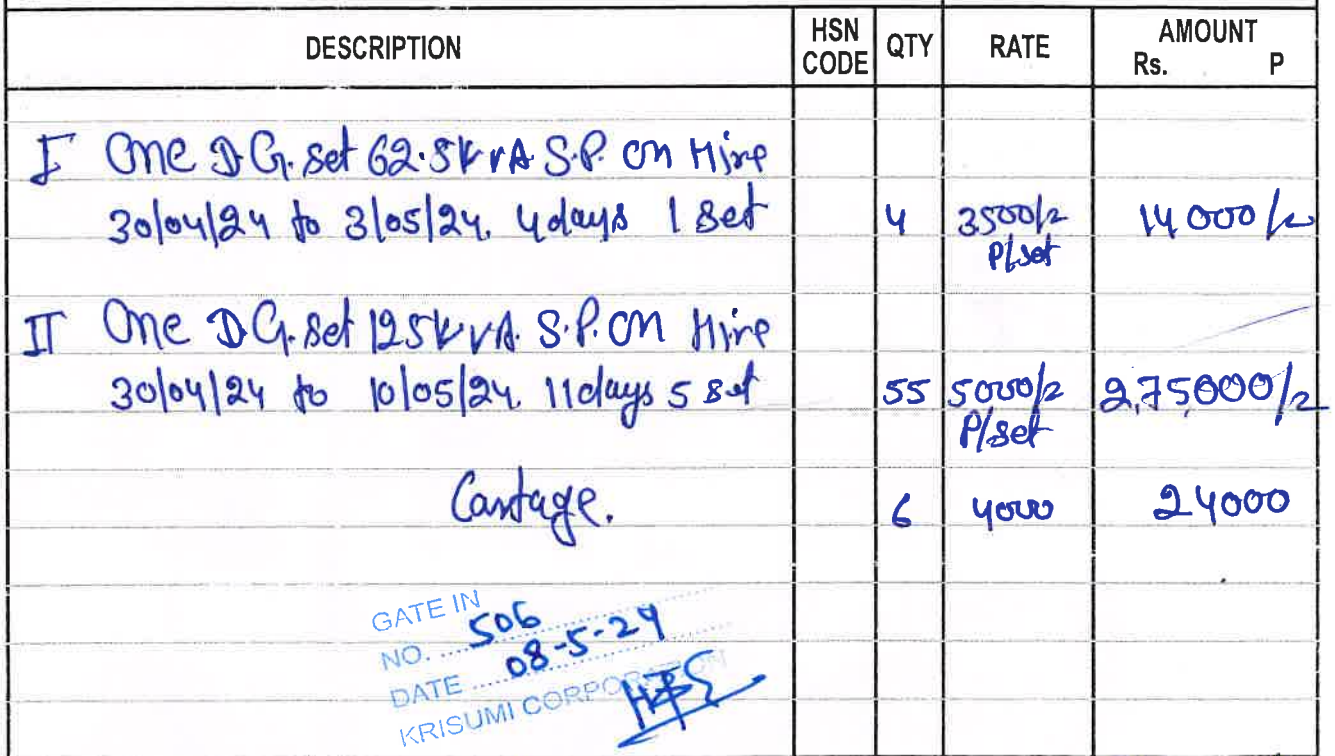 DESCRIPTION HSN CODE QTY RATE AMOUNT Rs. P
I One D.G. set 62.5KVA S.P. on Hire
30/04/24 to 3/05/24. 4 days 1 Set 4 3500/- 14000/-
P/set
II One D.G. set 125KVA. S.P. on Hire
30/04/24 to 10/05/24. 11 days 5 set 55 5000/- 2,75,000/-
P/set
Cartage. 6 4000 24000
GATE IN
NO. 506
DATE 08-5-24
KRISUMI CORPORATION